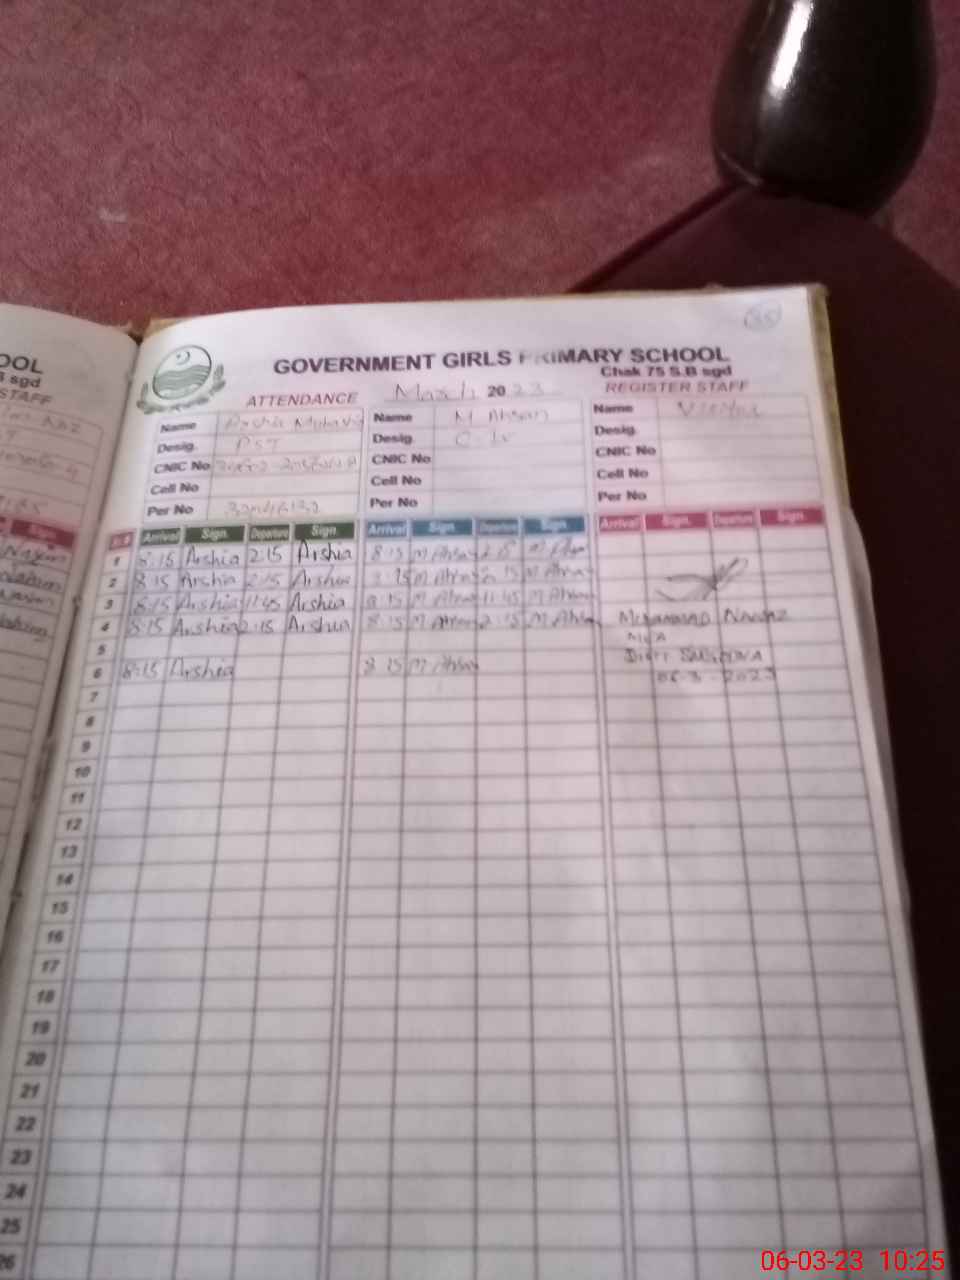 GOVERNMENT GIRLS PRIMARY SCHOOL
Chak 75 S.B sgd
ATTENDANCE March 2023 REGISTER STAFF
Name Name M Ahsan Name Visitor
Desig. PST Desig. Desig.
CNIC No CNIC No CNIC No
Cell No Cell No Cell No
Per No Per No Per No
Arrival Sign. Departure Sign Arrival Sign Departure Sign. Arrival Sign. Departure Sign.
1 8:15 Arshia 2:15 Arshia 8:15 M Ahsan M Ahsan
2 8:15 Arshia 2:15 Arshia 8:15 M Ahsan 2:15 M Ahsan
3 8:15 Arshia 11:45 Arshia 8:15 M Ahsan 11:45 M Ahsan
4 8:15 Arshia 2:15 Arshia 8:15 M Ahsan 2:15 M Ahsan MUHAMMAD NAWAZ
5 DISTT SARGODHA
6 8:15 Arshia 8:15 M Ahsan 06-3-2023
7
8
9
10
11
12
13
14
15
16
17
18
19
20
21
22
23
24
25
26
OOL
B sgd
STAFF
Sign
06-03-23 10:25